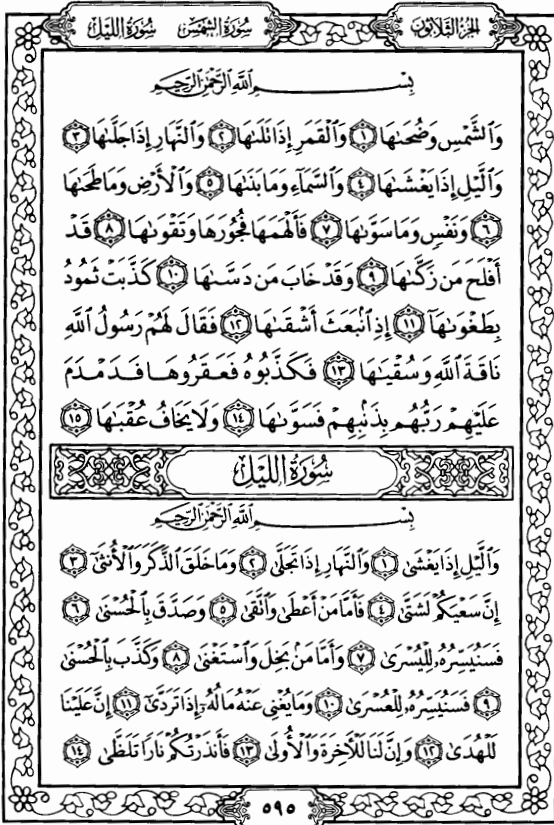 الجزء الثلاثون سورة الشمس سورة الليل
بِسْمِ اللَّهِ الرَّحْمَٰنِ الرَّحِيمِ
وَٱلشَّمْسِ وَضُحَىٰهَا ١ وَٱلْقَمَرِ إِذَا تَلَىٰهَا ٢ وَٱلنَّهَارِ إِذَا جَلَّىٰهَا ٣
وَٱلَّيْلِ إِذَا يَغْشَىٰهَا ٤ وَٱلسَّمَآءِ وَمَا بَنَىٰهَا ٥ وَٱلْأَرْضِ وَمَا طَحَىٰهَا
٦ وَنَفْسٍ وَمَا سَوَّىٰهَا ٧ فَأَلْهَمَهَا فُجُورَهَا وَتَقْوَىٰهَا ٨ قَدْ
أَفْلَحَ مَن زَكَّىٰهَا ٩ وَقَدْ خَابَ مَن دَسَّىٰهَا ١٠ كَذَّبَتْ ثَمُودُ
بِطَغْوَىٰهَآ ١١ إِذِ ٱنۢبَعَثَ أَشْقَىٰهَا ١٢ فَقَالَ لَهُمْ رَسُولُ ٱللَّهِ
نَاقَةَ ٱللَّهِ وَسُقْيَٰهَا ١٣ فَكَذَّبُوهُ فَعَقَرُوهَا فَدَمْدَمَ
عَلَيْهِمْ رَبُّهُم بِذَنۢبِهِمْ فَسَوَّىٰهَا ١٤ وَلَا يَخَافُ عُقْبَٰهَا ١٥
سُورَةُ اللَّيْلِ
بِسْمِ اللَّهِ الرَّحْمَٰنِ الرَّحِيمِ
وَٱلَّيْلِ إِذَا يَغْشَىٰ ١ وَٱلنَّهَارِ إِذَا تَجَلَّىٰ ٢ وَمَا خَلَقَ ٱلذَّكَرَ وَٱلْأُنثَىٰٓ ٣
إِنَّ سَعْيَكُمْ لَشَتَّىٰ ٤ فَأَمَّا مَنْ أَعْطَىٰ وَٱتَّقَىٰ ٥ وَصَدَّقَ بِٱلْحُسْنَىٰ ٦
فَسَنُيَسِّرُهُۥ لِلْيُسْرَىٰ ٧ وَأَمَّا مَنۢ بَخِلَ وَٱسْتَغْنَىٰ ٨ وَكَذَّبَ بِٱلْحُسْنَىٰ
٩ فَسَنُيَسِّرُهُۥ لِلْعُسْرَىٰ ١٠ وَمَا يُغْنِى عَنْهُ مَالُهُۥٓ إِذَا تَرَدَّىٰٓ ١١ إِنَّ عَلَيْنَا
لَلْهُدَىٰ ١٢ وَإِنَّ لَنَا لَلْءَاخِرَةَ وَٱلْأُولَىٰ ١٣ فَأَنذَرْتُكُمْ نَارًا تَلَظَّىٰ ١٤
٥٩٥